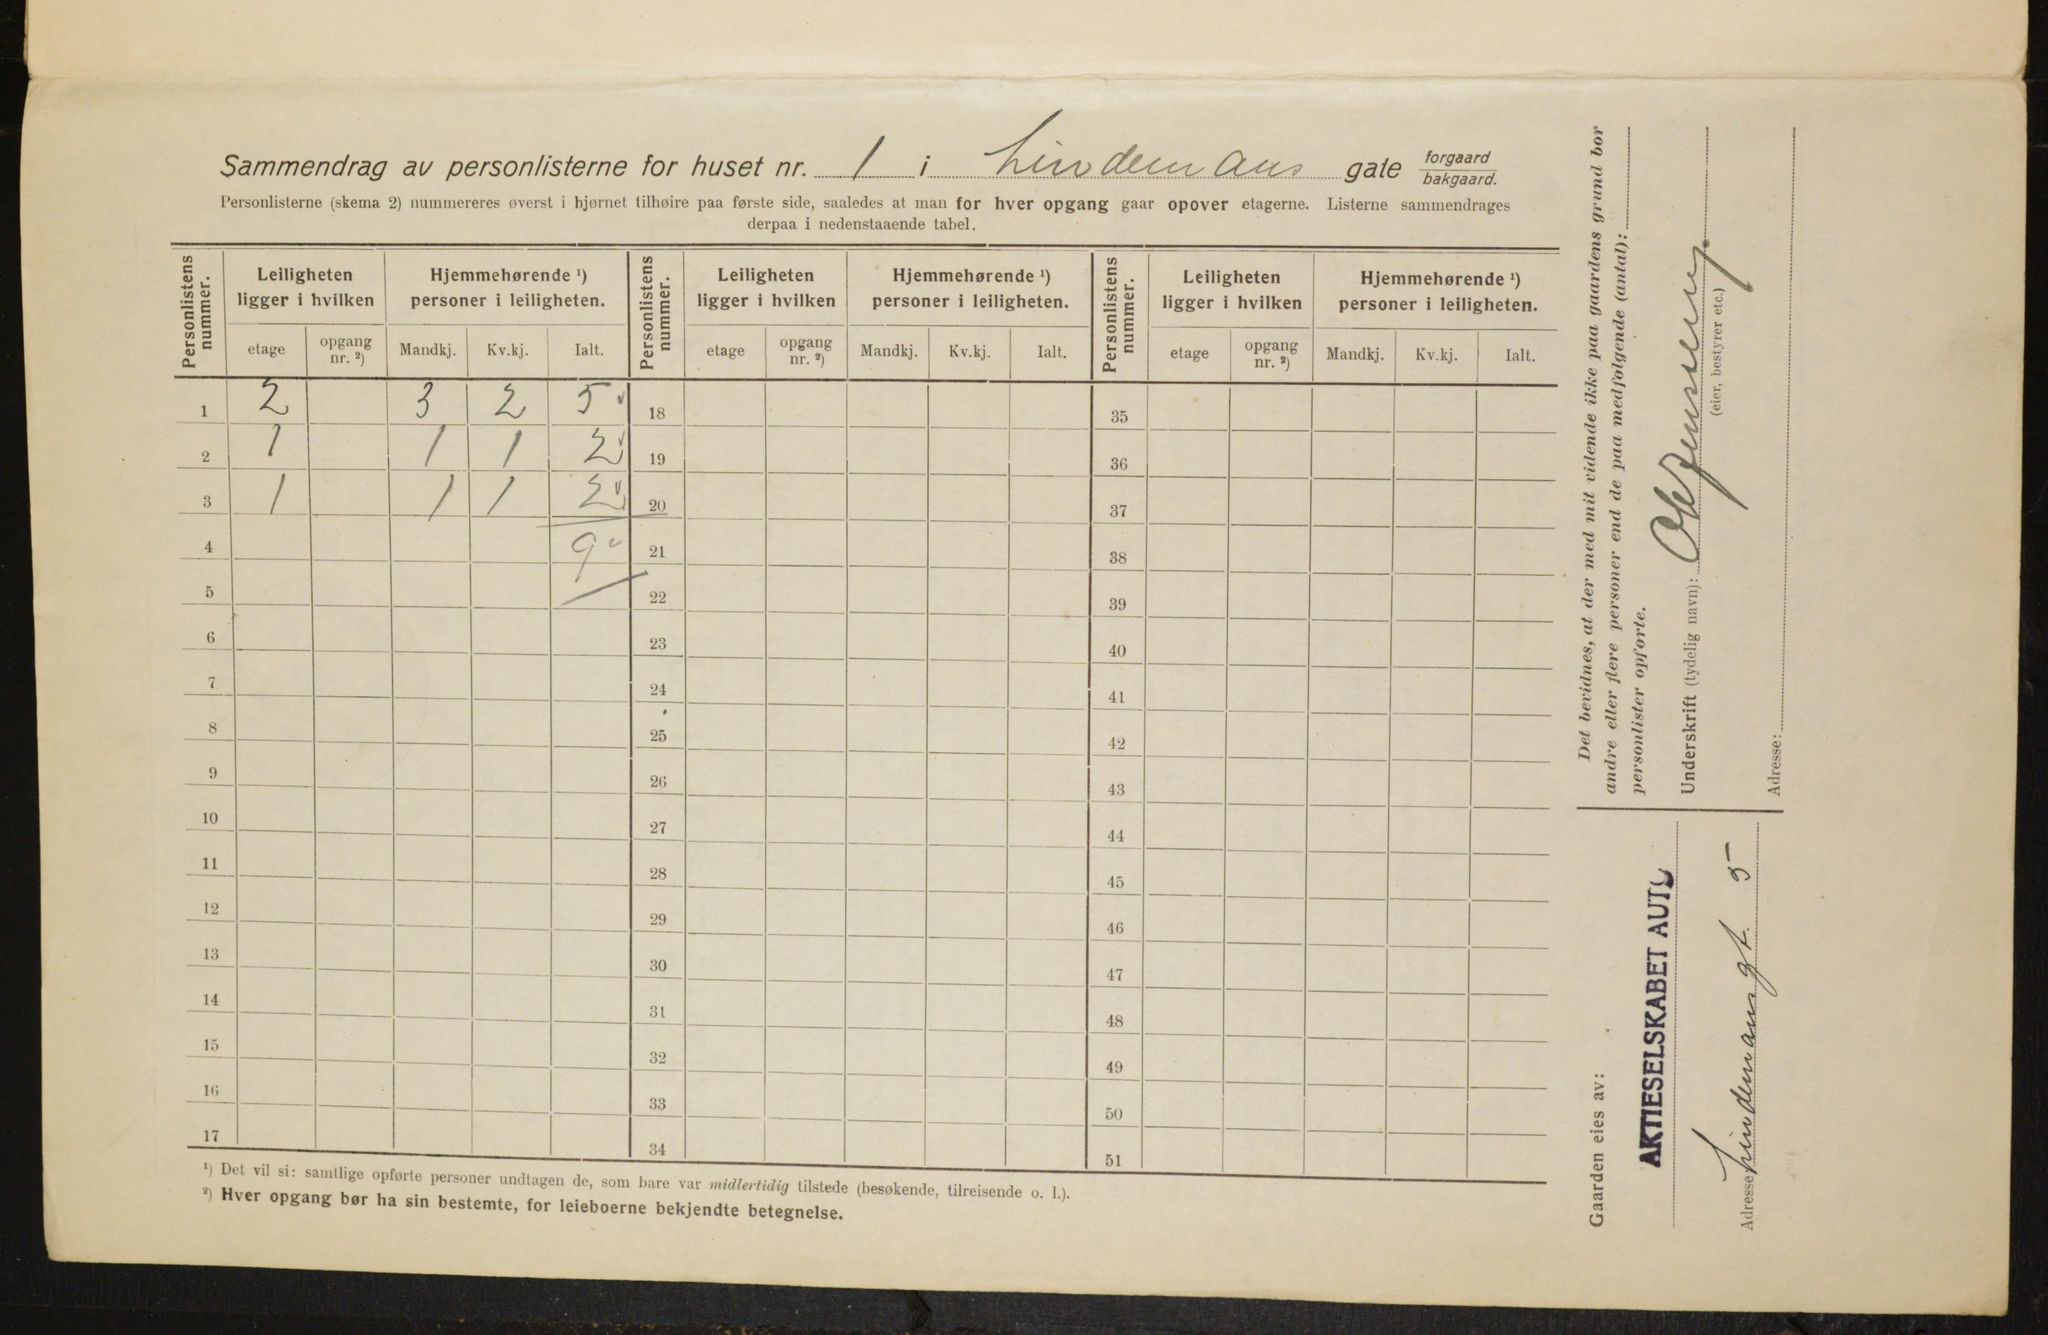 Sammendrag av personlisterne for huset nr. 1 i Lindemans gate forgaard bakgaard.
Personlisterne (skema 2) nummereres øverst i hjørnet tilhøire paa første side, saaledes at man for hver opgang gaar opover etagerne. Listerne sammendrages
derpaa i nedenstaaende tabel.
Personlistens nummer. Leiligheten ligger i hvilken Hjemmehørende ¹) personer i leiligheten. Personlistens nummer. Leiligheten ligger i hvilken Hjemmehørende ¹) personer i leiligheten. Personlistens nummer. Leiligheten ligger i hvilken Hjemmehørende ¹) personer i leiligheten.
etage opgang nr. ²) Mandkj. Kv.kj. Ialt. etage opgang nr. ²) Mandkj. Kv.kj. Ialt. etage opgang nr. ²) Mandkj. Kv.kj. Ialt.
1 2 3 2 5 18 35
2 1 1 1 2 19 36
3 1 1 1 2 20 37
4 9 21 38
5 22 39
6 23 40
7 24 41
8 25 42
9 26 43
10 27 44
11 28 45
12 29 46
13 30 47
14 31 48
15 32 49
16 33 50
17 34 51
¹) Det vil si: samtlige opførte personer undtagen de, som bare var midlertidig tilstede (besøkende, tilreisende o. l.).
²) Hver opgang bør ha sin bestemte, for leieboerne bekjendte betegnelse.
Det bevidnes, at der med mit vidende ikke paa gaardens grund bor
andre eller flere personer end de paa medfølgende (antal):
personlister opførte.
Underskrift (tydelig navn):
(eier, bestyrer etc.)
Adresse:
Gaarden eies av:
AKTIESELSKABET AUTO
Adresse Lindemansgt. 5